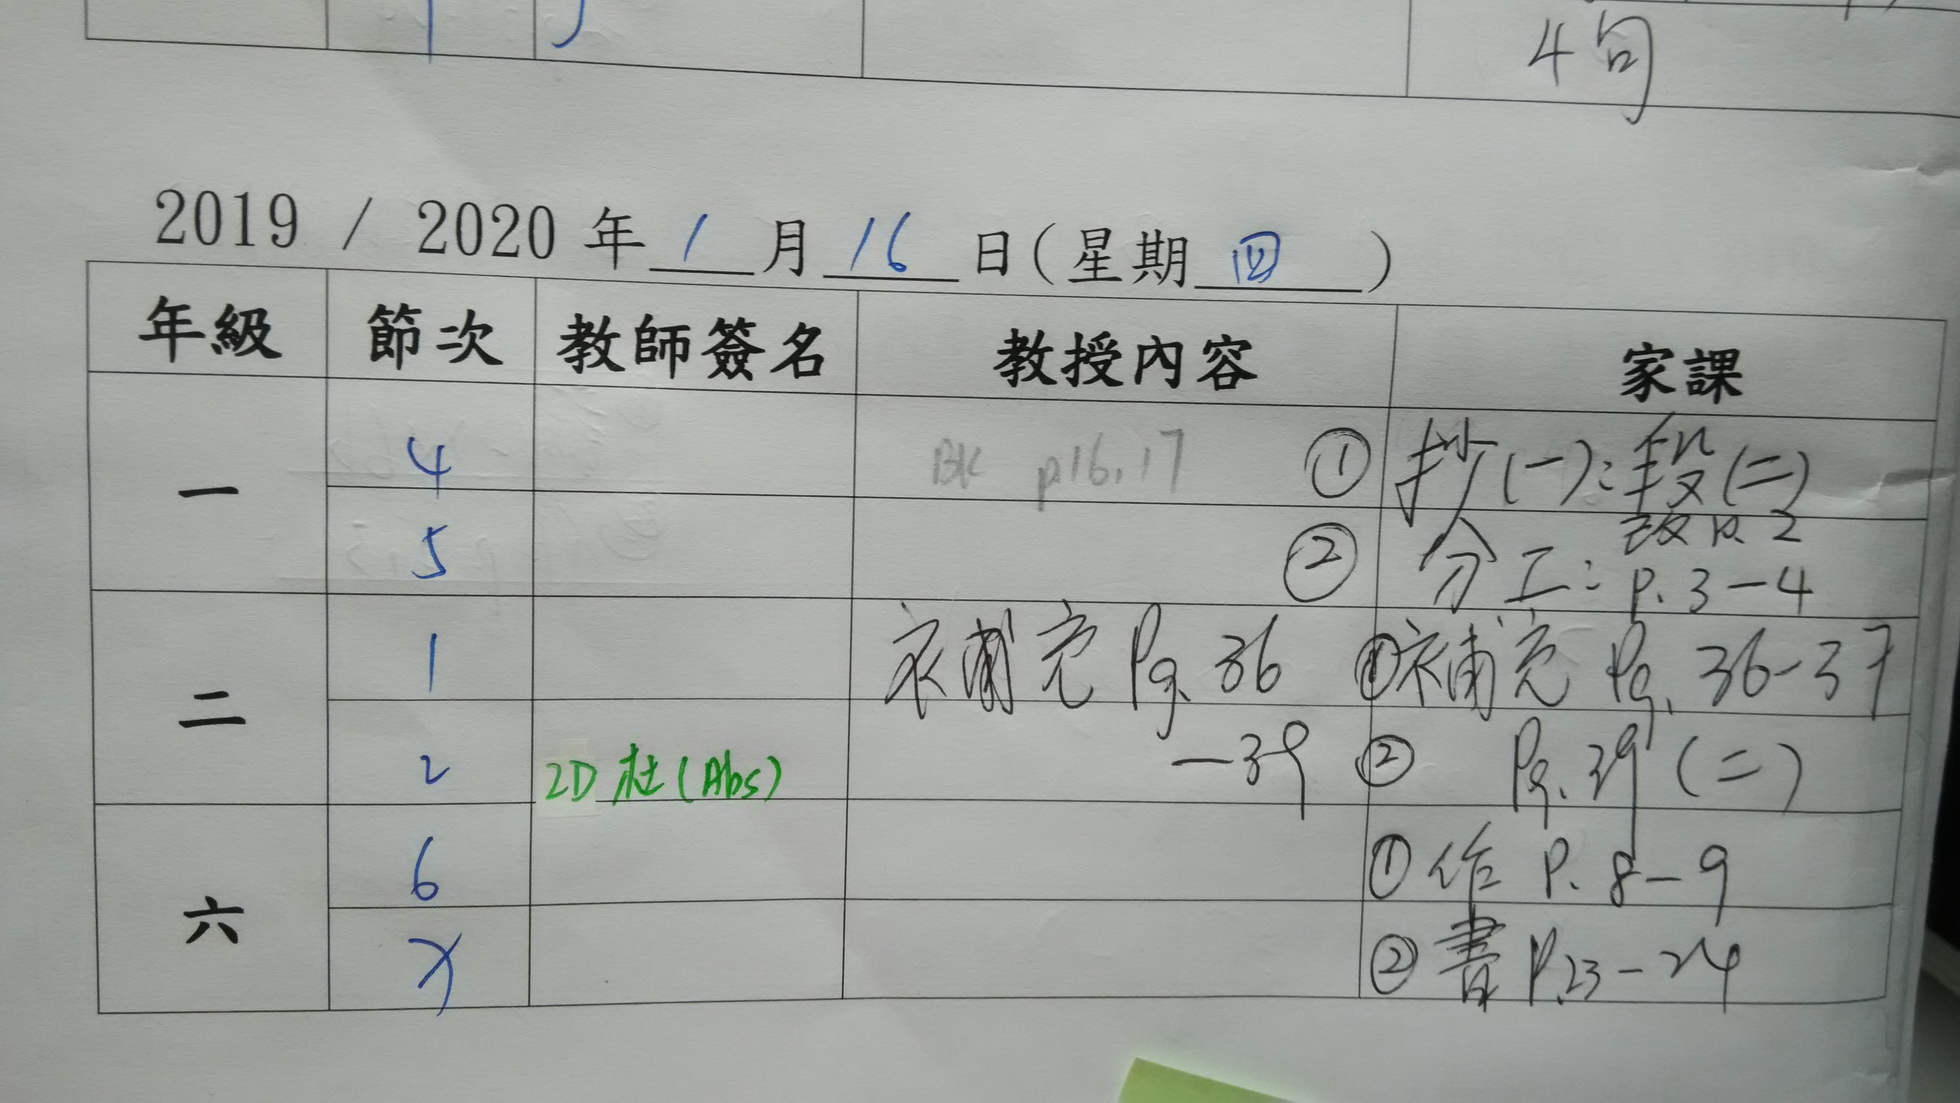 4句
2019 / 2020 年 1 月 16 日(星期 四 )
年級 節次 教師簽名 教授內容 家課
一 4 BK p16,17 ① 抄(一):段(二)
段段2
5 ② 分工: p. 3-4
二 1 補充 Pg. 36 ①補充 Pg. 36-37
2 2D 杜(Abs) -39 ② Pg. 39 (二)
六 6 ①作 P. 8-9
②書 P.23-24